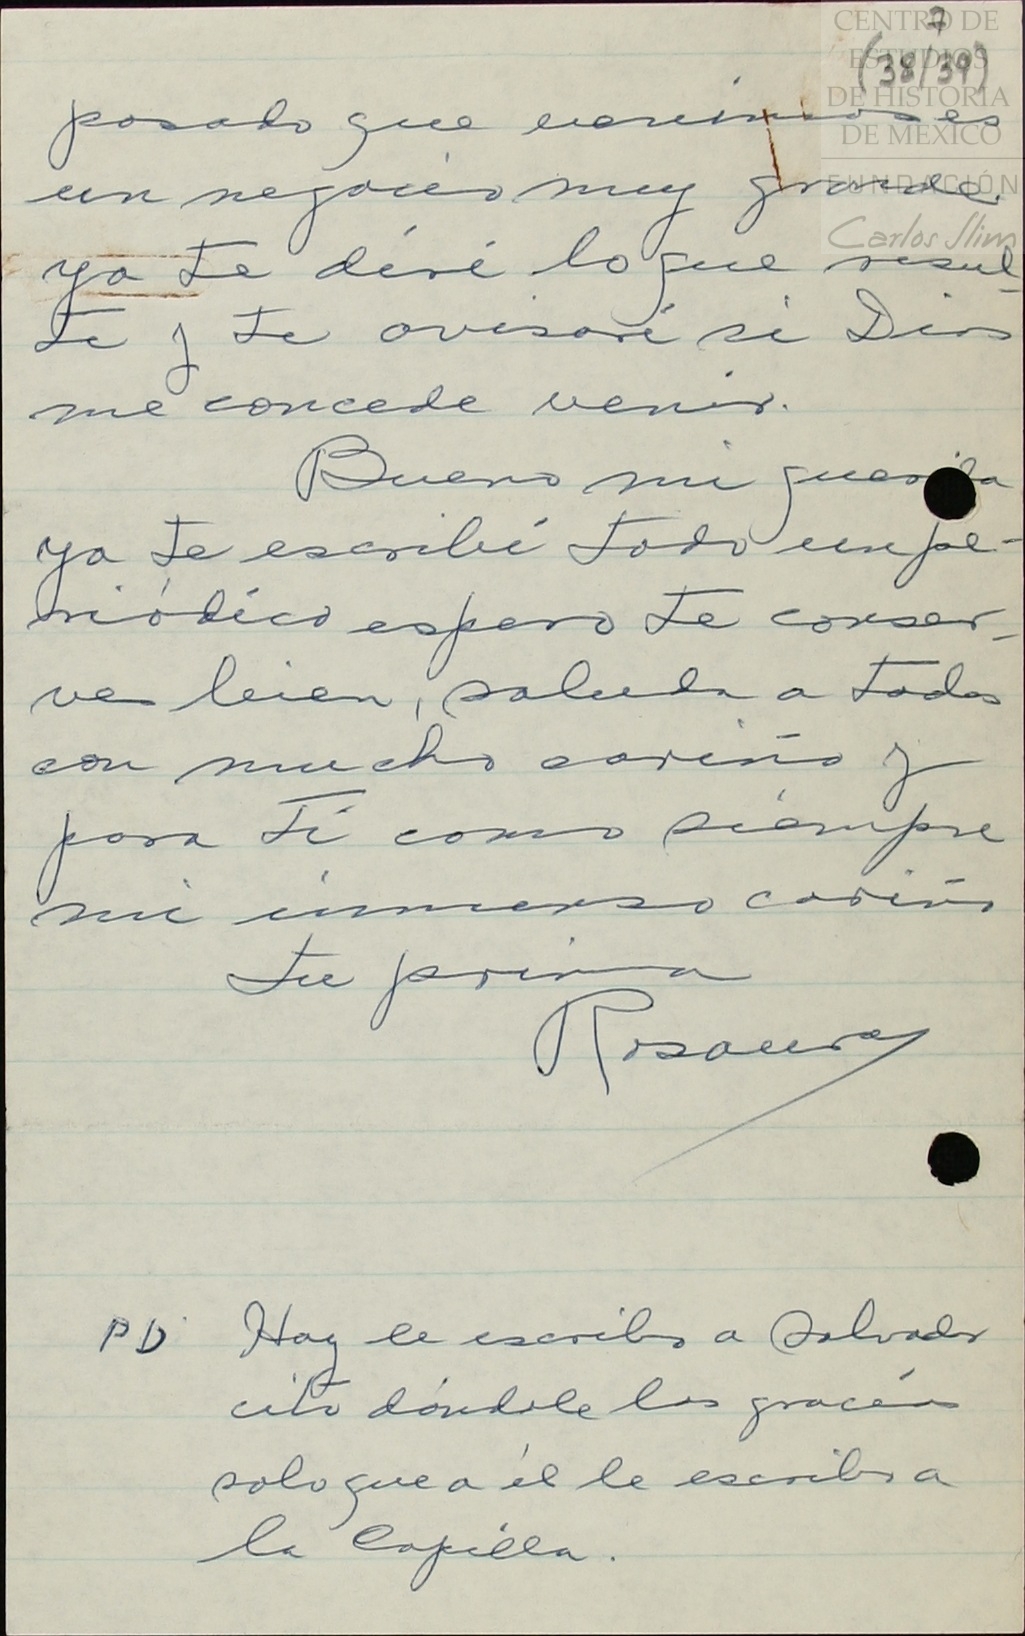 7
(38/39)
CENTRO DE
ESTUDIOS
DE HISTORIA
DE MEXICO
FUNDACIÓN
Carlos Slim
pasado que venimos es
un negocio muy grande.
ya te diré lo que resul-
te y te avisaré si Dios
me concede venir.
Bueno mi querida
ya te escribí todo un pe-
riódico espero te conser-
ves bien, saluda a todos
con mucho cariño y
para tí como siempre
mi inmenso cariño
tu prima
Rosaura
PD Hoy le escribo a Salvador
cito dándole las gracias
solo que a él le escribo a
la Capilla.